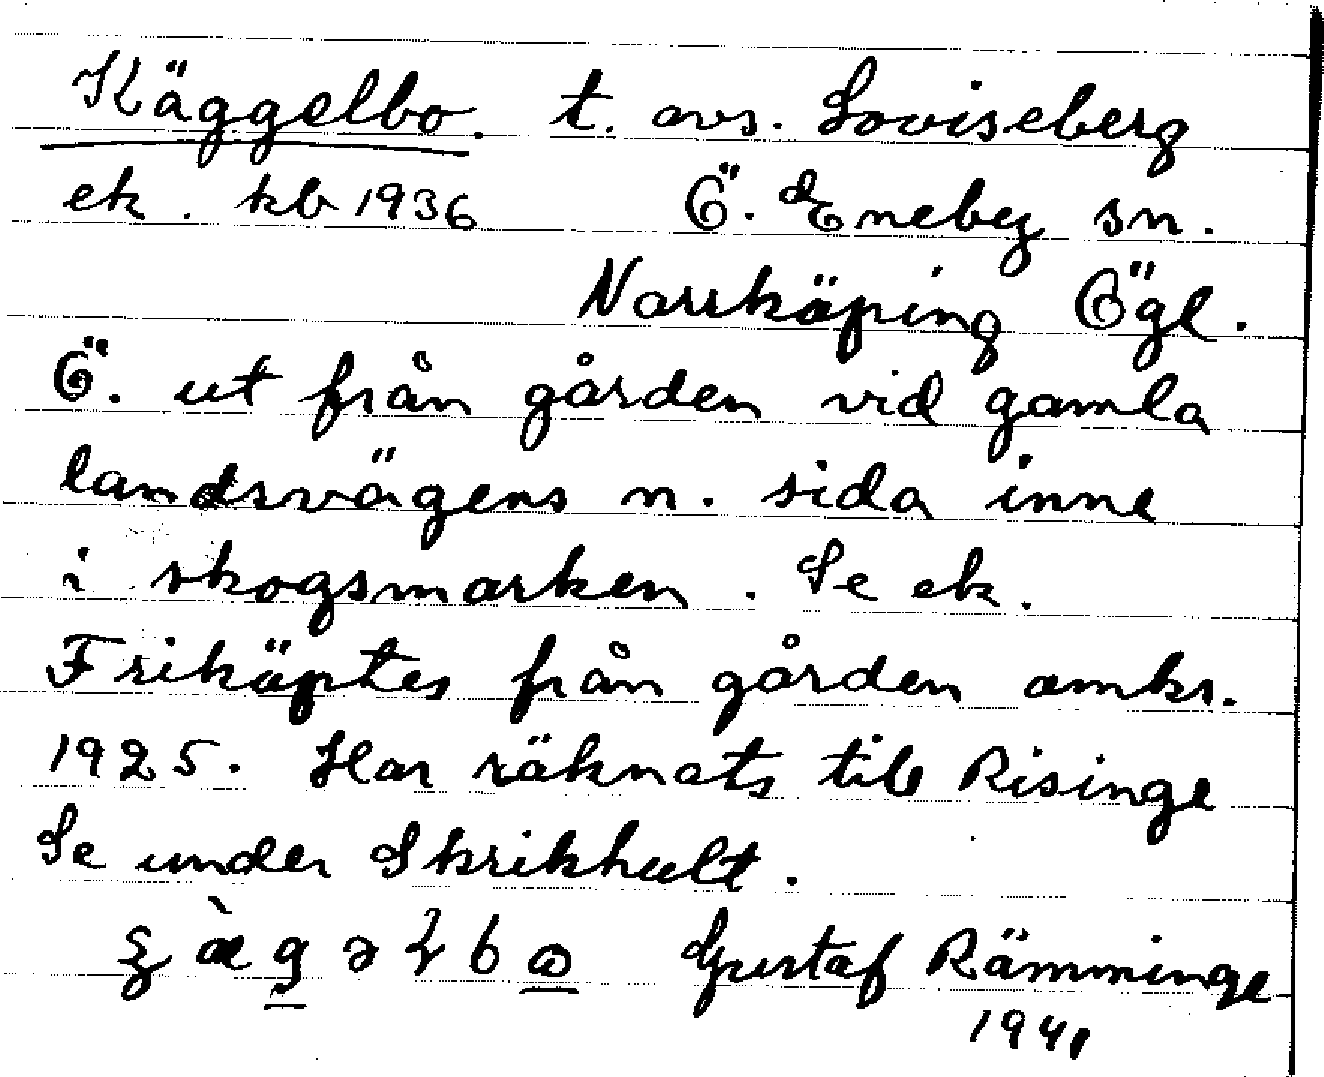 Käggelbo. t. avs. Loviseberg
ek. kb 1936 Ö. Eneby sn.
Norrköping Ögl.
Ö. ut från gården vid gamla
landsvägens n. sida inne
i skogsmarken. Se ek.
Friköptes från gården omkr.
1925. Har räknats till Risinge
Se under Skrikhult.
Gustaf Rämminge
1941